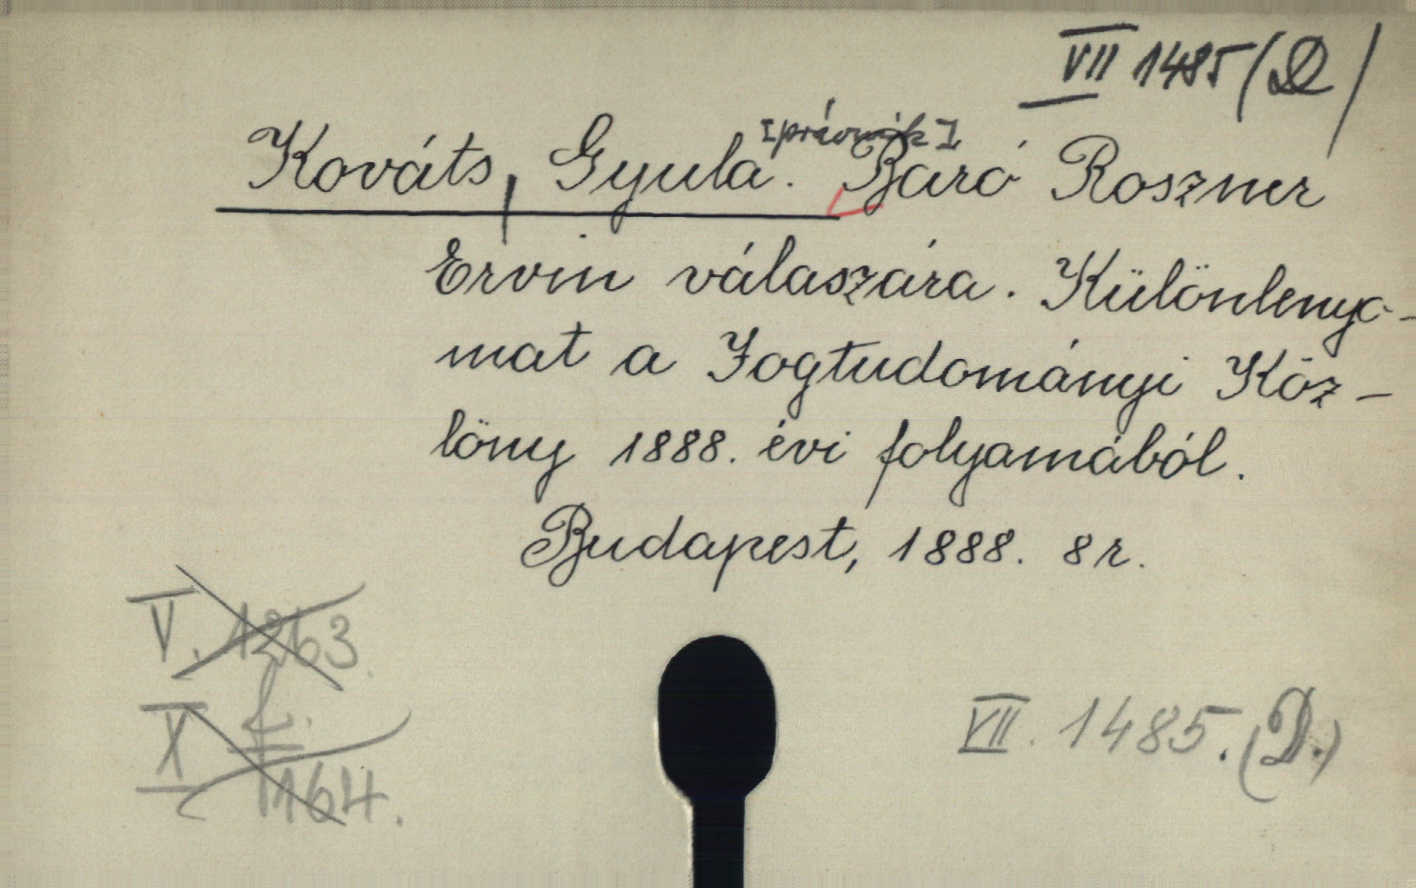 VII 1485 (D)
[právnik]
Kováts, Gyula. Báró Roszner
Ervin válaszára. Különlenyo-
mat a Jogtudományi Köz-
löny 1888. évi folyamából.
Budapest, 1888. 8r.
V. 1263.
X 1164.
VII. 1485. (D.)